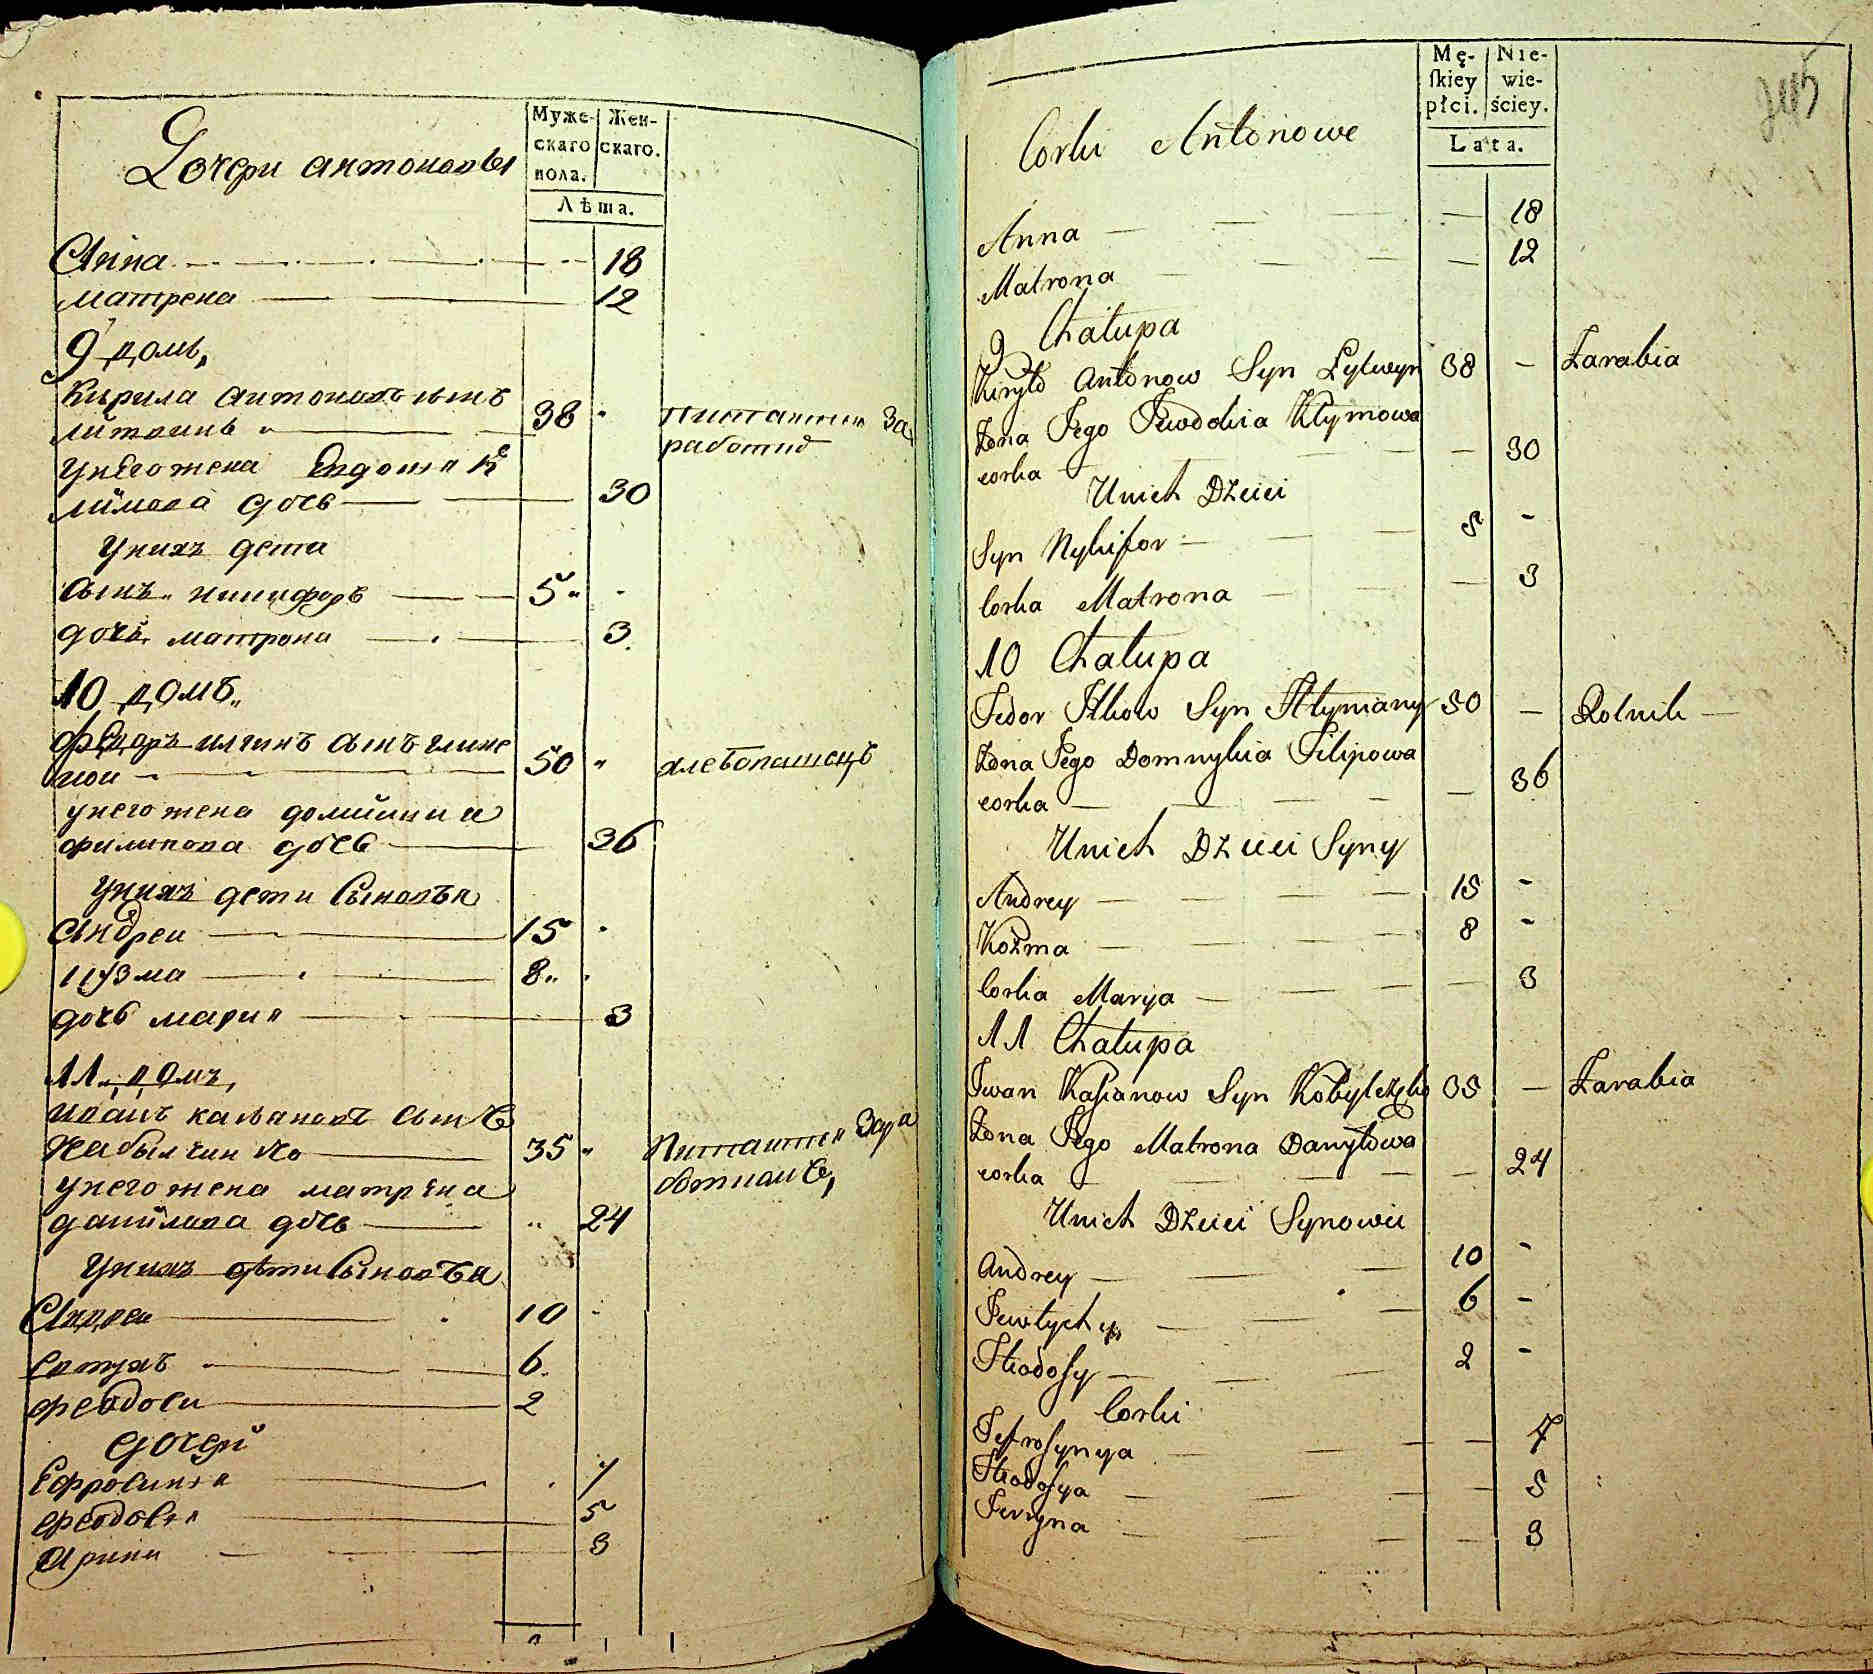 Дочери антоновы
Муже-
скаго
пола.
Жен-
скаго.
Лѣта.
Анна 18
матрена 12
9 домъ,
Кирила антоновъ сынъ
литвинъ 38 питаится За
работко
унего жена Евдокия К
лимова дочь 30
унихъ дети
сынъ никифоръ 5
дочь матрона 3
10 домъ
федоръ илкинъ сынъ глиня
ной 50 хлебопашецъ
унего жена домникия
филипова дочь 36
унихъ дети Сыновья
Андреи 15
кузма 8
дочь мария 3
11 домъ,
иванъ касяновъ сынъ
Кабылчинко 35 Питаится Зара
ботками,
унего жена матрена
данилова дочь 24
унихъ дѣти Сыновъя
Андреи 10
евтухъ 6
феодоси 2
дочери
Ефросиния 7
феодосия 5
Арина 3
245
Mę-
skiey
płci.
Nie-
wie-
ściey.
Lata.
Corki Antonowe
Anna — 18
Matrona — 12
9 Chałupa
Kiryło Antonow Syn Lytwyn 38 — Zarabia
Żona Jego Jewdokia Kłymowa
corka — 30
Unich Dzieci
Syn Nykifor 5 -
Corka Matrona — 3
10 Chałupa
Fedor Ilkow Syn Hlyniany 50 — Rolnik —
Żona Jego Domnykia Filipowa
corka — 36
Unich Dzieci Syny
Andrey 15 -
Kozma 8 -
Corka Marya — 3
11 Chałupa
Iwan Kasianow Syn Kobylczęko 35 — Zarabia
Żona Jego Matrona Danyłowa
corka — 24
Unich Dzieci Synowie
Andrey 10 -
Jewtych 6 -
Fteodosy 2 -
Corki
Jefrosynya — 7
Fteodosya — 5
Jeryna — 3